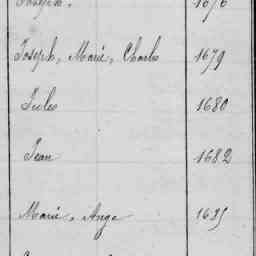 Joseph. 1676
Joseph, Marie, Charles 1679
Jules 1680
Jean 1682
Marie, Ange